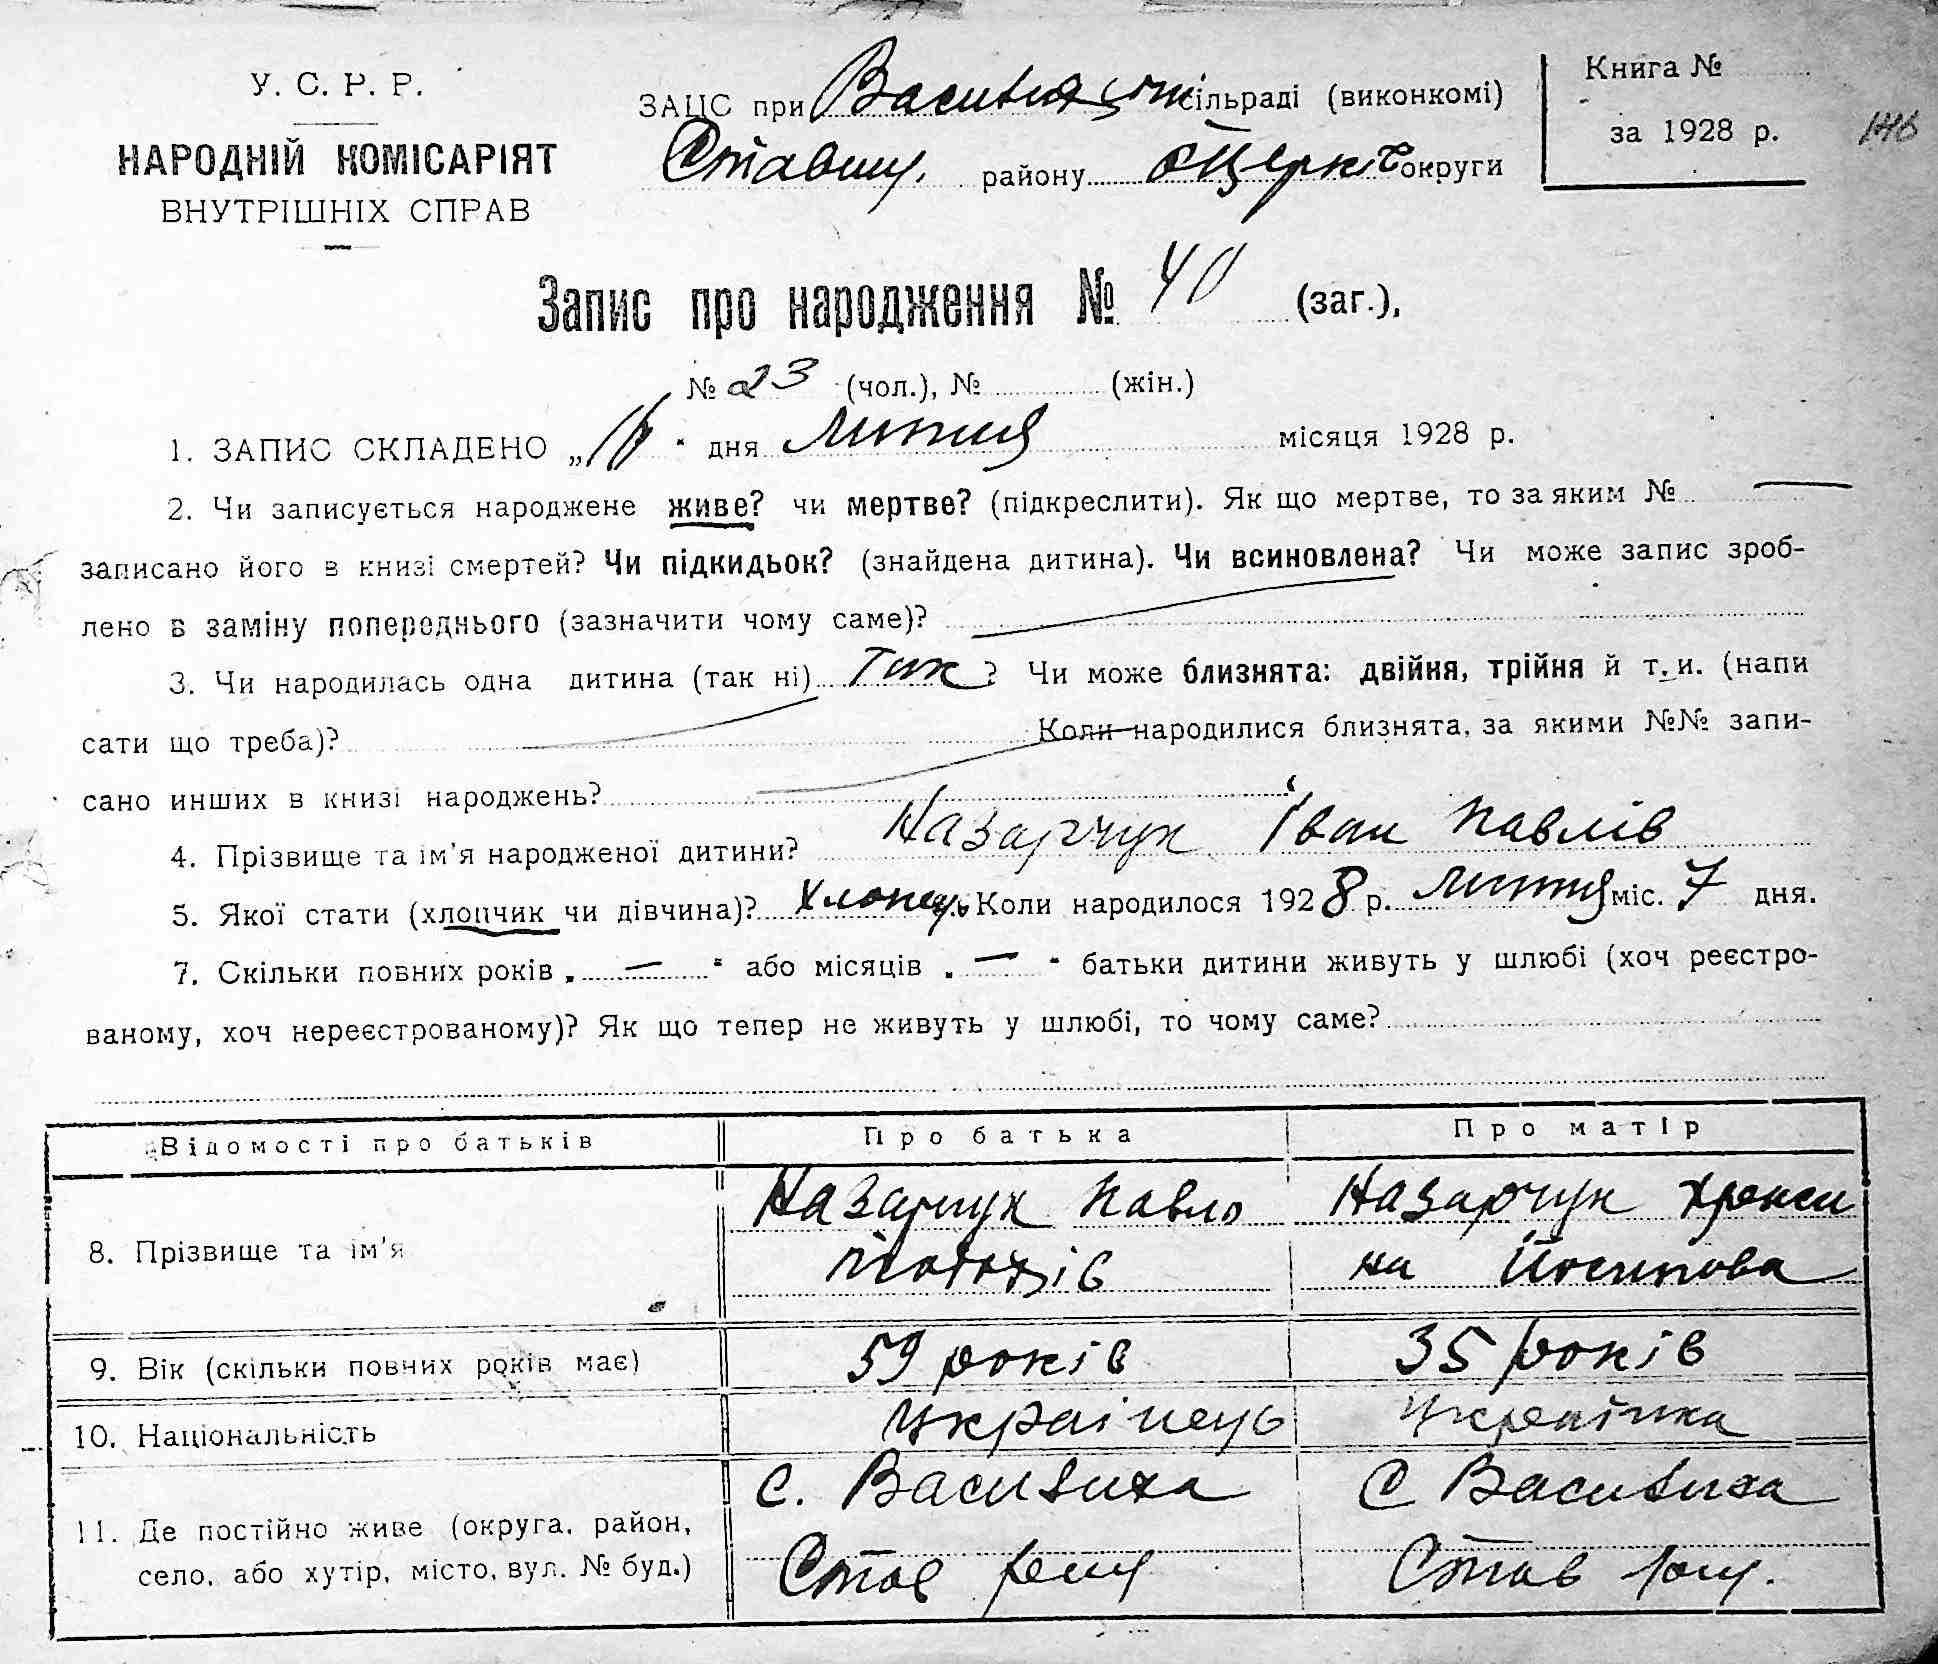 У. С. Р. Р.
НАРОДНІЙ КОМІСАРІЯТ
ВНУТРІШНІХ СПРАВ
ЗАЦС при сільраді (виконкомі)
Ставищ. району БЦерків округи
Книга №
за 1928 р.
146
Запис про народження № 40 (заг.),
№ 23 (чол.), № (жін.)
1. ЗАПИС СКЛАДЕНО „ “ дня Липня місяця 1928 р.
2. Чи записується народжене живе? чи мертве? (підкреслити). Як що мертве, то за яким № —
записано його в книзі смертей? Чи підкидьок? (знайдена дитина). Чи всиновлена? Чи може запис зроб-
лено в заміну попереднього (зазначити чому саме)?
3. Чи народилась одна дитина (так ні) Так? Чи може близнята: двійня, трійня й т. и. (напи
сати що треба)? Коли народилися близнята, за якими №№ запи-
сано инших в книзі народжень?
4. Прізвище та ім'я народженої дитини? Назарчук Іван Павлів
5. Якої стати (хлопчик чи дівчина)? Хлопець Коли народилося 1928 р. Липня міс. 7 дня.
7. Скільки повних років „ — “ або місяців „ — “ батьки дитини живуть у шлюбі (хоч реєстро-
ваному, хоч нереєстрованому)? Як що тепер не живуть у шлюбі, то чому саме?
Відомості про батьків Про батька Про матір
8. Прізвище та ім'я Назарчук Павло Назарчук
на Йосипова
9. Вік (скільки повних років має) 59 років 35 років
10. Національність Українець Українка
11. Де постійно живе (округа, район,
село, або хутір, місто, вул. № буд.)
с. Василиха С Василиха
Став рищ Став